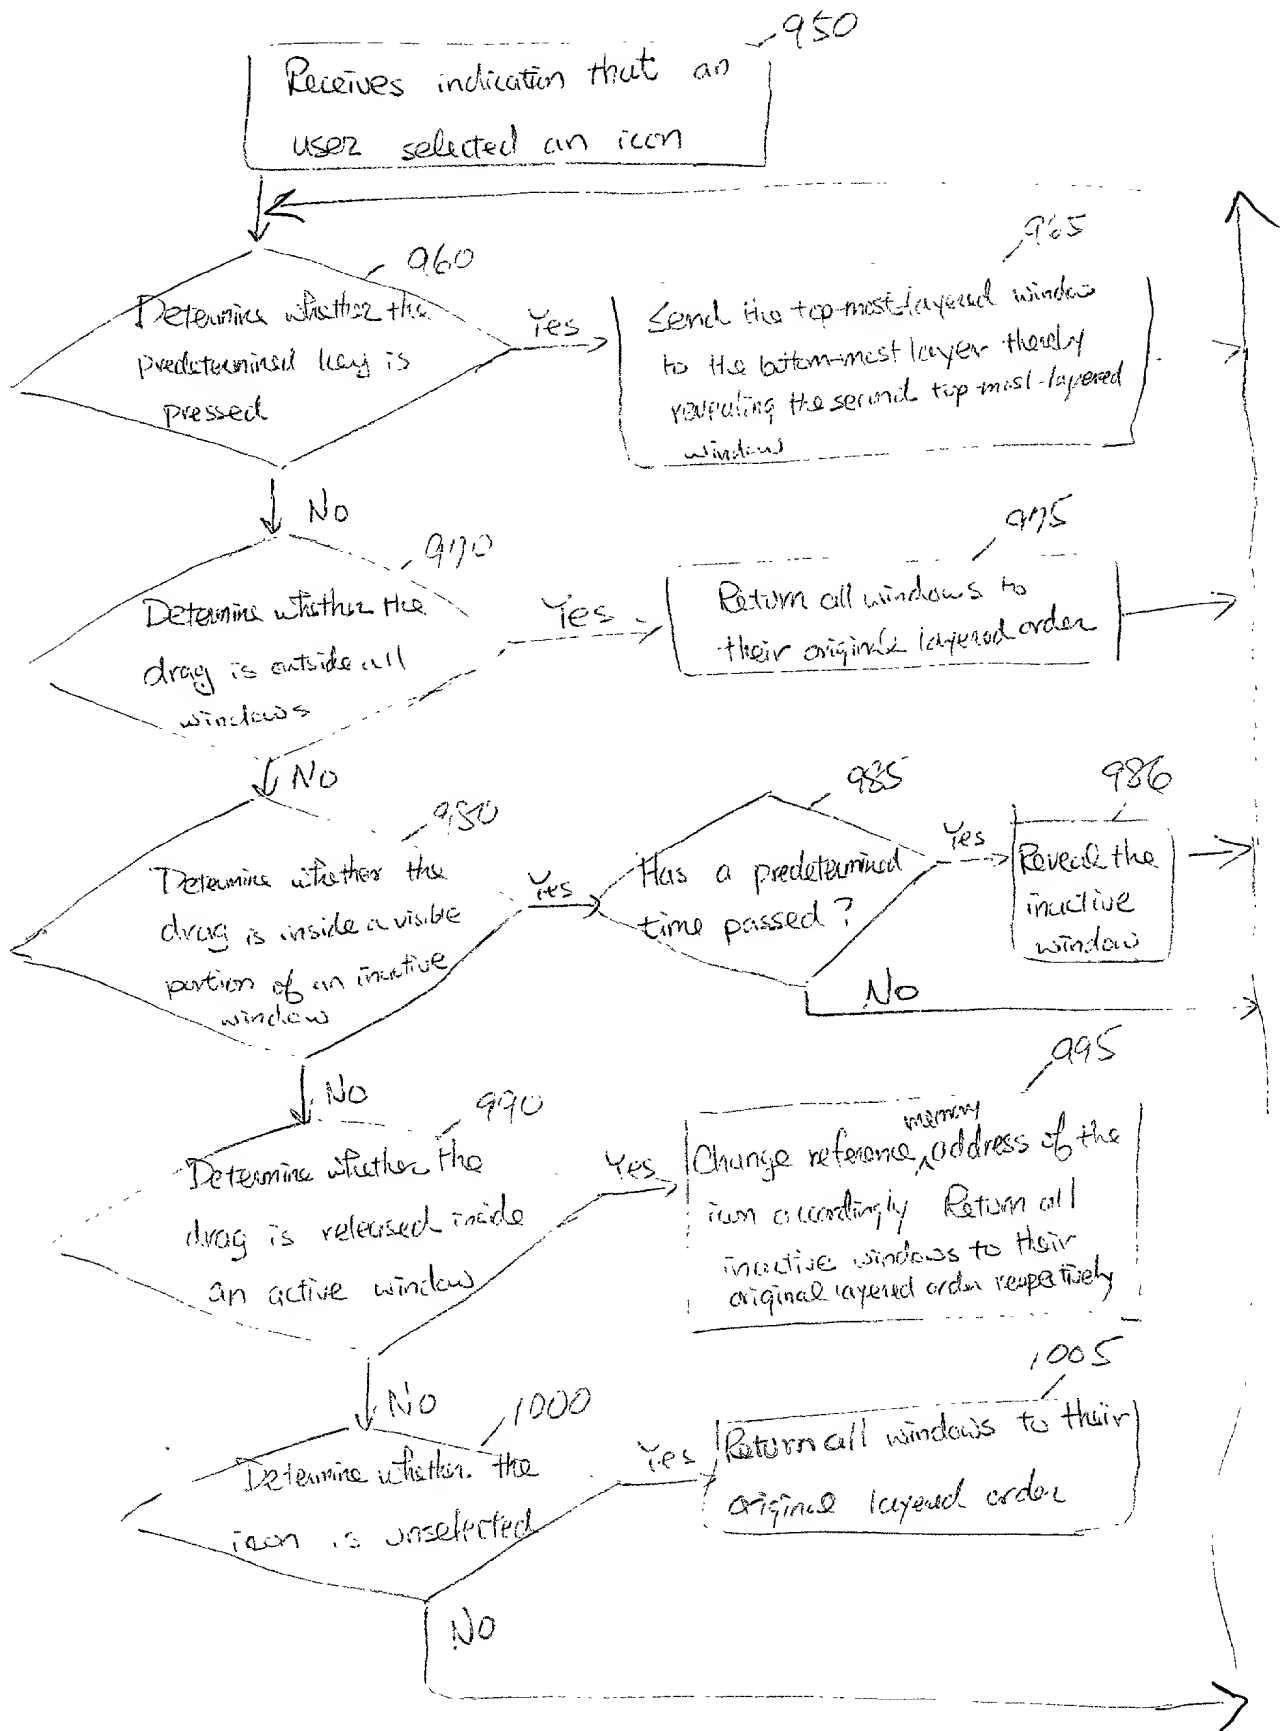 950
Receives indication that an
user selected an icon
960
Determine whether the
predetermined key is
pressed
Yes
965
Send the top-most-layered window
to the bottom-most layer thereby
revealing the second top-most-layered
window
No
970
Determine whether the
drag is outside all
windows
Yes
975
Return all windows to
their original layered order
No
980
Determine whether the
drag is inside a visible
portion of an inactive
window
Yes
985
Has a predetermined
time passed?
Yes
986
Reveal the
inactive
window
No
No
990
Determine whether the
drag is released inside
an active window
Yes
995
Change reference memory address of the
icon accordingly Return all
inactive windows to their
original layered order respectively
No
1000
Determine whether the
icon is unselected
Yes
1005
Return all windows to their
original layered order
No